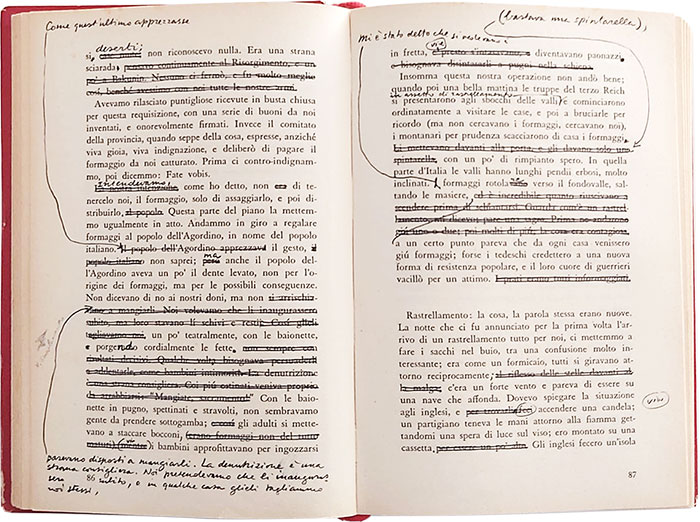 Come quest'ultimo apprezzasse
deserti;
si, non riconoscevo nulla. Era una strana
sciarada, pensavo continuamente al Risorgimento, e un
po' a Bakunin. Nessuno ci fermò, e fu molto meglio
così, benché avessimo con noi tutte le nostre armi.
Avevamo rilasciato puntigliose ricevute in busta chiusa
per questa requisizione, con una serie di buoni da noi
inventati, e onorevolmente firmati. Invece il comitato
della provincia, quando seppe della cosa, espresse, anziché
viva gioia, viva indignazione, e deliberò di pagare il
formaggio da noi catturato. Prima ci contro-indignam-
mo, poi dicemmo: Fate vobis.
intendevamo
come ho detto, non di te-
nercelo noi, il formaggio, solo di assaggiarlo, e poi di-
stribuirlo, al popolo. Questa parte del piano la mettem-
mo ugualmente in atto. Andammo in giro a regalare
formaggi al popolo dell'Agordino, in nome del popolo
italiano. Il popolo dell'Agordino apprezzava il gesto, il
popolo italiano non saprei; ma anche il popolo del-
l'Agordino aveva un po' il dente levato, non per l'o-
rigine dei formaggi, ma per le possibili conseguenze.
Non dicevano di no ai nostri doni, ma non si arrischia-
vano a mangiarli. Noi volevamo che li inaugurassero
subito, ma loro stavano lì schivi e restii. Così glieli
tagliavamo noi, un po' teatralmente, con le baionette,
e porgendo cordialmente le fette.
"Mangiate, sacramento!" Con le baio-
nette in pugno, spettinati e stravolti, non sembravamo
gente da prendere sottogamba; così gli adulti si mette-
vano a staccare bocconi, (erano formaggi non del tutto
maturi) (ma) i bambini approfittavano per ingozzarsi
parevano disposti a mangiarli. La denutrizione è una
strana consigliera. Noi pretendevamo che li inauguras
sero subito, e in qualche casa glieli tagliammo
noi stessi,
86
(bastava una spintarella),
Mi è stato detto che si
in fretta, e presto s'intasavano, e diventavano pannazzi,
e bisognava disintasarli a pugni nella schiena.
Insomma questa nostra operazione non andò bene;
quando poi una bella mattina le truppe del terzo Reich
in assetto di rastrellamento
si presentarono agli sbocchi delle valli e cominciarono
ordinatamente a visitare le case, e poi a bruciarle per
ricordo (ma non cercavano i formaggi, cercavano noi),
i montanari per prudenza scacciarono di casa i formaggi.
Li mettevano davanti alla porta, e gli davano solo una
spintarella, con un po' di rimpianto spero. In quella
parte d'Italia le valli hanno lunghi pendii erbosi, molto
inclinati. I formaggi rotolavano verso il fondovalle, sal-
tando le masiere,
a un certo punto pareva che da ogni casa venissero
giú formaggi; forse i tedeschi credettero a una nuova
forma di resistenza popolare, e il loro cuore di guerrieri
vacillò per un attimo.
Rastrellamento: la cosa, la parola stessa erano nuove.
La notte che ci fu annunziato per la prima volta l'ar-
rivo di un rastrellamento tutto per noi, ci mettemmo a
fare i sacchi nel buio, tra una confusione molto in-
teressante; era come un formicaio, tutti si giravano at-
torno reciprocamente; al riflesso delle stelle davanti al-
la malga, c'era un forte vento e pareva di essere su
una nave che affonda. Dovevo spiegare la situazione
vivo
agli inglesi, e accendere una candela;
un partigiano teneva le mani attorno alla fiamma get-
tandomi una spera di luce sul viso; ero montato su una
cassetta, per essere un po' alto. Gli inglesi fecero un'isola
87